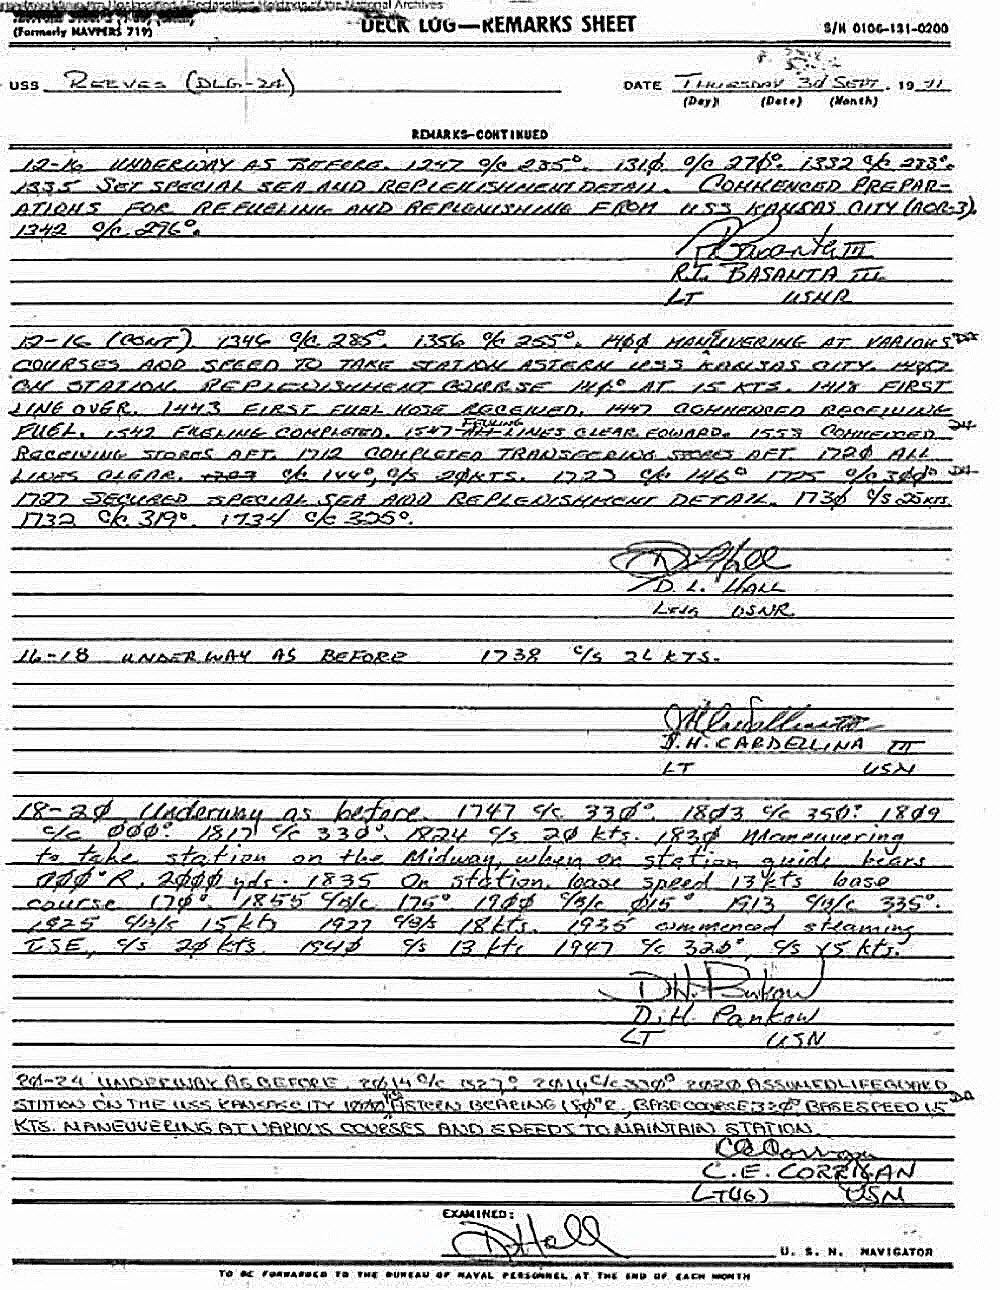 National Archives
(Formerly NAVPERS 719)
DECK LOG—REMARKS SHEET
S/N 0106-131-0200
USS REEVES (DLG-24)
DATE THURSDAY 3d SEPT. 19 71
(Day) (Date) (Month)
REMARKS—CONTINUED
12-16 UNDERWAY AS BEFORE. 1247 c/c 235°. 131Ø c/c 27Ø°. 1332 c/c 233°.
1335 SET SPECIAL SEA AND REPLENISHMENT DETAIL. COMMENCED PREPAR-
ATIONS FOR REFUELING AND REPLENISHING FROM USS KANSAS CITY (AOR-3).
1342 c/c 296°.
R.T. BASANTA III
LT USNR
12-16 (CONT) 1346 c/c 285°. 1356 c/c 255°. 14ØØ MANUVERING AT VARIOUS
COURSES AND SPEED TO TAKE STATION ASTERN USS KANSAS CITY.
ON STATION. REPLENISHMENT COURSE 14Ø° AT 15 KTS. 1418 FIRST
LINE OVER. 1443 FIRST FUEL HOSE RECEIVED. 1447 COMMENCED RECEIVING
FUEL. 1542 FUELING COMPLETED. 1547 FUELING LINES CLEAR FOWARD. 1553 COMMENCED
RECEIVING STORES AFT. 1712 COMPLETED TRANSFERING STORES AFT 172Ø ALL
LINES CLEAR. c/c 144°, c/s 2ØKTS. 1723 c/c 146° 1725 c/c 3ØØ°
1727 SECURED SPECIAL SEA AND REPLENISHMENT DETAIL. 173Ø c/s 25KTS.
1732 c/c 319°. 1734 c/c 325°.
D L Hall
D. L. HALL
LTJG USNR
16-18 UNDERWAY AS BEFORE 1738 c/s 26 KTS.
J.H. CARDELLINA III
LT USN
18-2Ø Underway as before. 1747 c/c 33Ø°. 18Ø3 c/c 35Ø°. 18Ø9
c/c ØØØ°. 1817 c/c 33Ø°. 1824 c/s 2Ø kts. 183Ø Maneuvering
to take station on the Midway, when on station guide bears
ØØØ°R, 2ØØØ yds. 1835 On station, base speed 13 kts base
course 17Ø°. 1855 c/b/c 175° 19ØØ c/b/c Ø15° 1913 c/b/c 335°.
1925 c/b/s 15 kts 1927 c/b/s 18 kts. 1935 commenced steaming
ISE, c/s 2Ø kts. 194Ø c/s 13 kts 1947 c/c 32Ø°, c/s 15 kts.
D.H. Pankow
D.H. Pankow
LT USN
2Ø-24 UNDERWAY AS BEFORE. 2Ø14 c/c 327° 2Ø16 c/c 33Ø° 2Ø2Ø ASSUMED LIFEGUARD
STATION ON THE USS KANSAS CITY 1ØØØ YDS ASTERN BEARING 15Ø°R, BASE COURSE 33Ø° BASE SPEED 15
KTS. MANEUVERING AT VARIOUS COURSES AND SPEEDS TO MAINTAIN STATION.
CE Corrigan
C.E. CORRIGAN
LT(JG) USN
EXAMINED:
D L Hall
U. S. N. NAVIGATOR
TO BE FORWARDED TO THE BUREAU OF NAVAL PERSONNEL AT THE END OF EACH MONTH